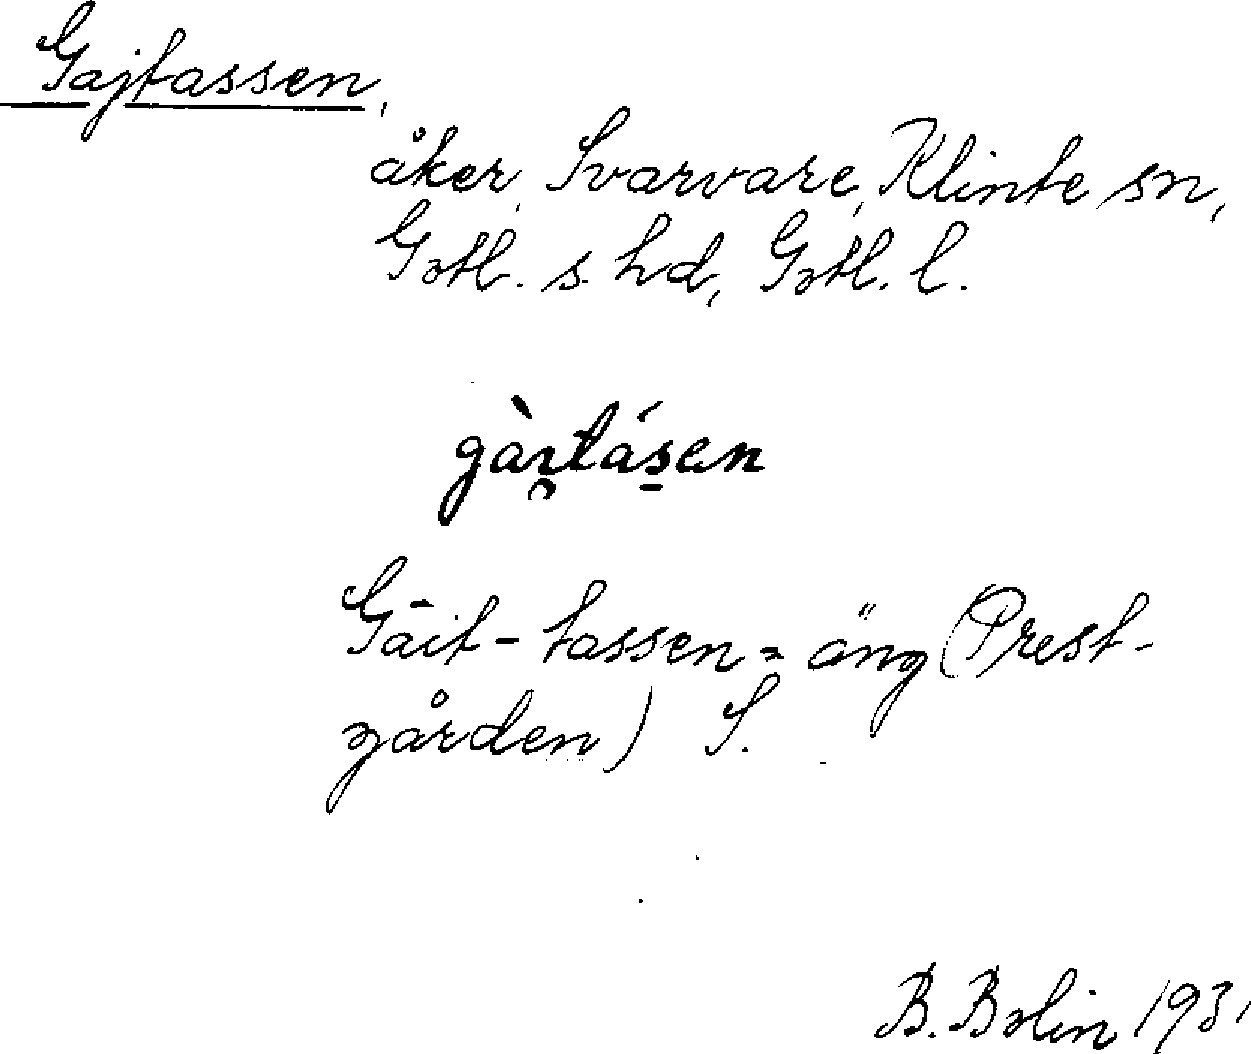 Gajtassen,
åker, Svarvare, Klinte sn,
Gotl. s. hd, Gotl. l.
Gāit-tassen = äng (Prest-
gården) S.
B. Bolin 1931